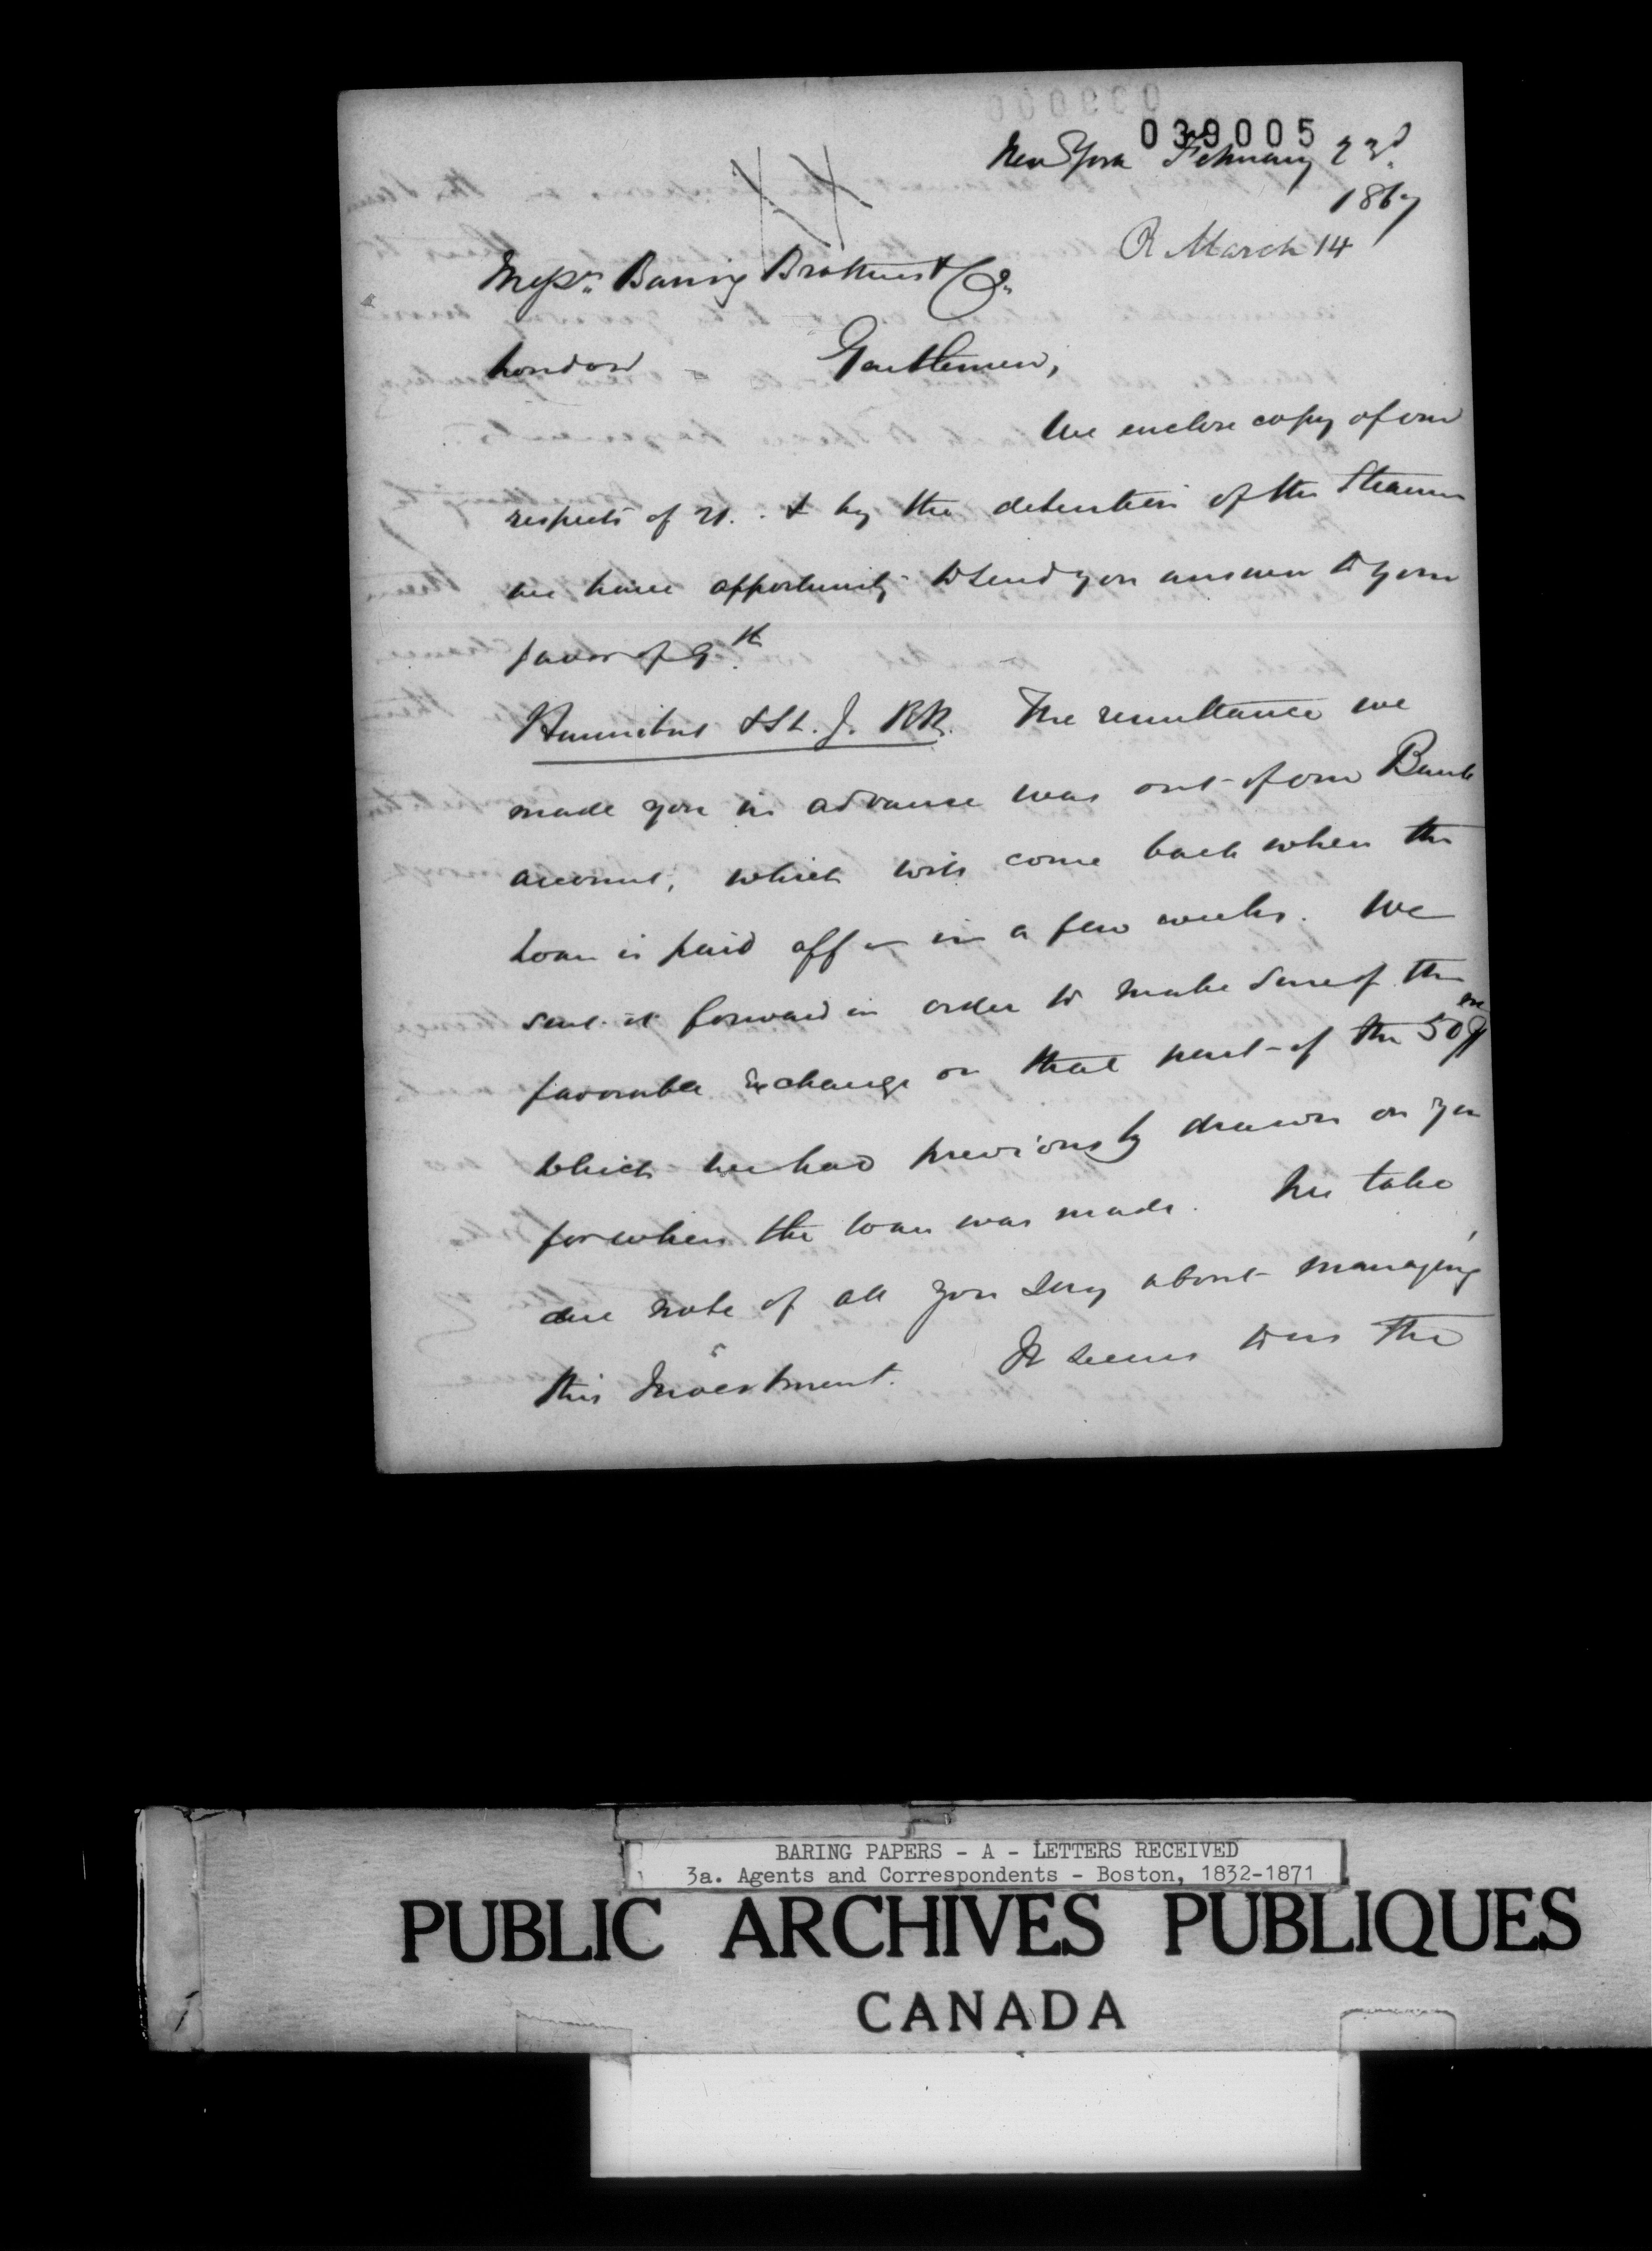 039005
New York February 23d
1867
R March 14
Messrs Baring Brothers & Co.
London - Gentlemen,
We enclose copy of our
respects of 21. & by the detention of the Steamer
we have opportunity to send you answer to your
favor of 9th
Hannibal & St. J. RR. The remittance we
made you in advance was out of our Bank
account, which will come back when the
Loan is paid off in a few weeks. We
sent it forward in order to make sure of the
favorable exchange on that part of the 50
which we had previously drawn on you
for when the loan was made. We take
due note of all you say about managing
this Investment. It seems to us the
BARING PAPERS - A - LETTERS RECEIVED
3a. Agents and Correspondents - Boston, 1832-1871
PUBLIC ARCHIVES PUBLIQUES
CANADA